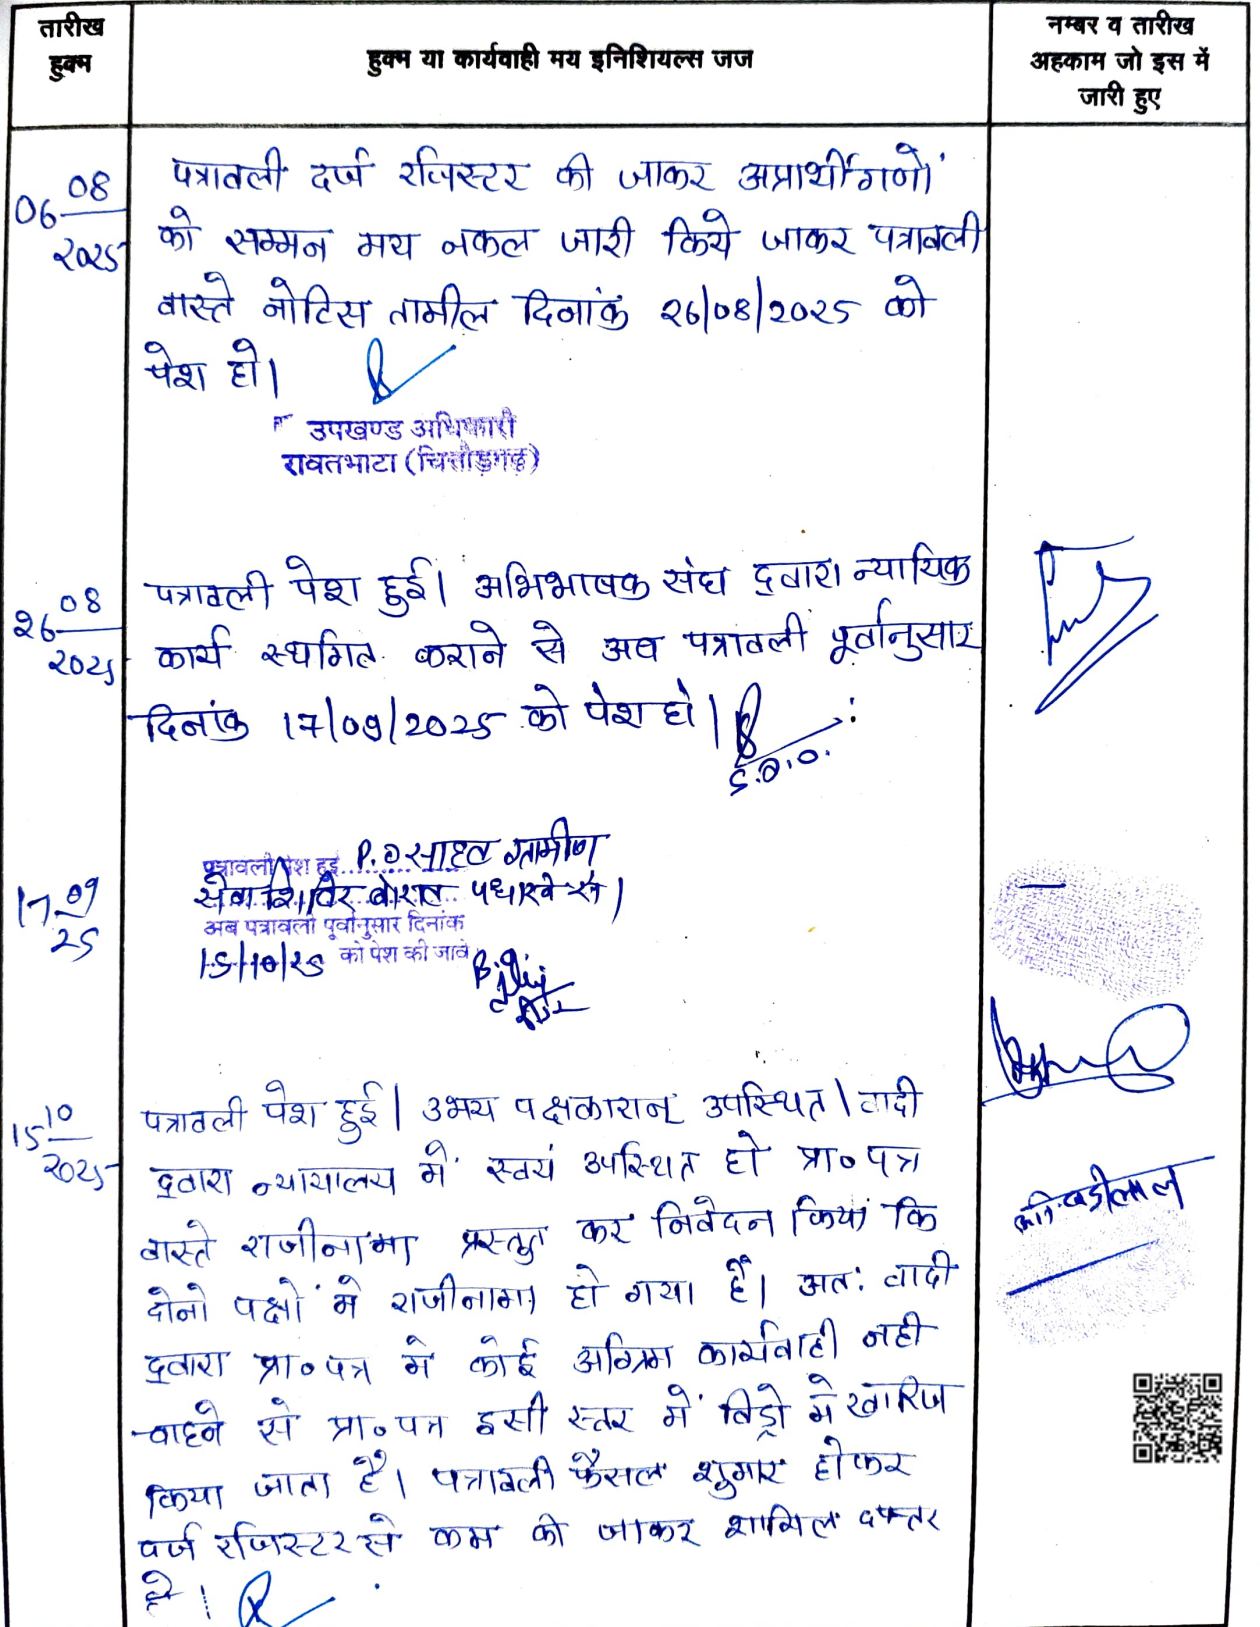 तारीख
हुक्म
हुक्म या कार्यवाही मय इनिशियल्स जज
नम्बर व तारीख
अहकाम जो इस में
जारी हुए
06 08
2025
पत्रावली दर्ज रजिस्टर की जाकर अप्रार्थीगणों
को सम्मन मय नकल जारी किये जाकर पत्रावली
वास्ते नोटिस तामील दिनांक 26/08/2025 को
पेश हो।
उपखण्ड अधिकारी
रावतभाटा (चित्तौड़गढ़)
26 08
2025
पत्रावली पेश हुई। अभिभाषक संघ द्वारा न्यायिक
कार्य स्थगित कराने से अब पत्रावली पूर्वानुसार
दिनांक 17/09/2025 को पेश हो।
S.D.O.
17 09
25
पत्रावली पेश हुई P.O साहब ग्रामीण
सेवा शिविर बोराव पधारने से।
अब पत्रावली पूर्वानुसार दिनांक
15/10/25 को पेश की जावे
15 10
2025
पत्रावली पेश हुई। उभय पक्षकारान् उपस्थित। वादी
द्वारा न्यायालय में स्वयं उपस्थित हो प्रा०पत्र
वास्ते राजीनामा प्रस्तुत कर निवेदन किया कि
दोनो पक्षों मे राजीनामा हो गया हैं। अतः वादी
द्वारा प्रा०पत्र मे कोई अग्रिम कार्यवाही नही
चाहने से प्रा०पत्र इसी स्तर में विड्रो मे खारिज
किया जाता है। पत्रावली फैसल शुमार होकर
दर्ज रजिस्टर से कम की जाकर शामिल दफ्तर
हो।